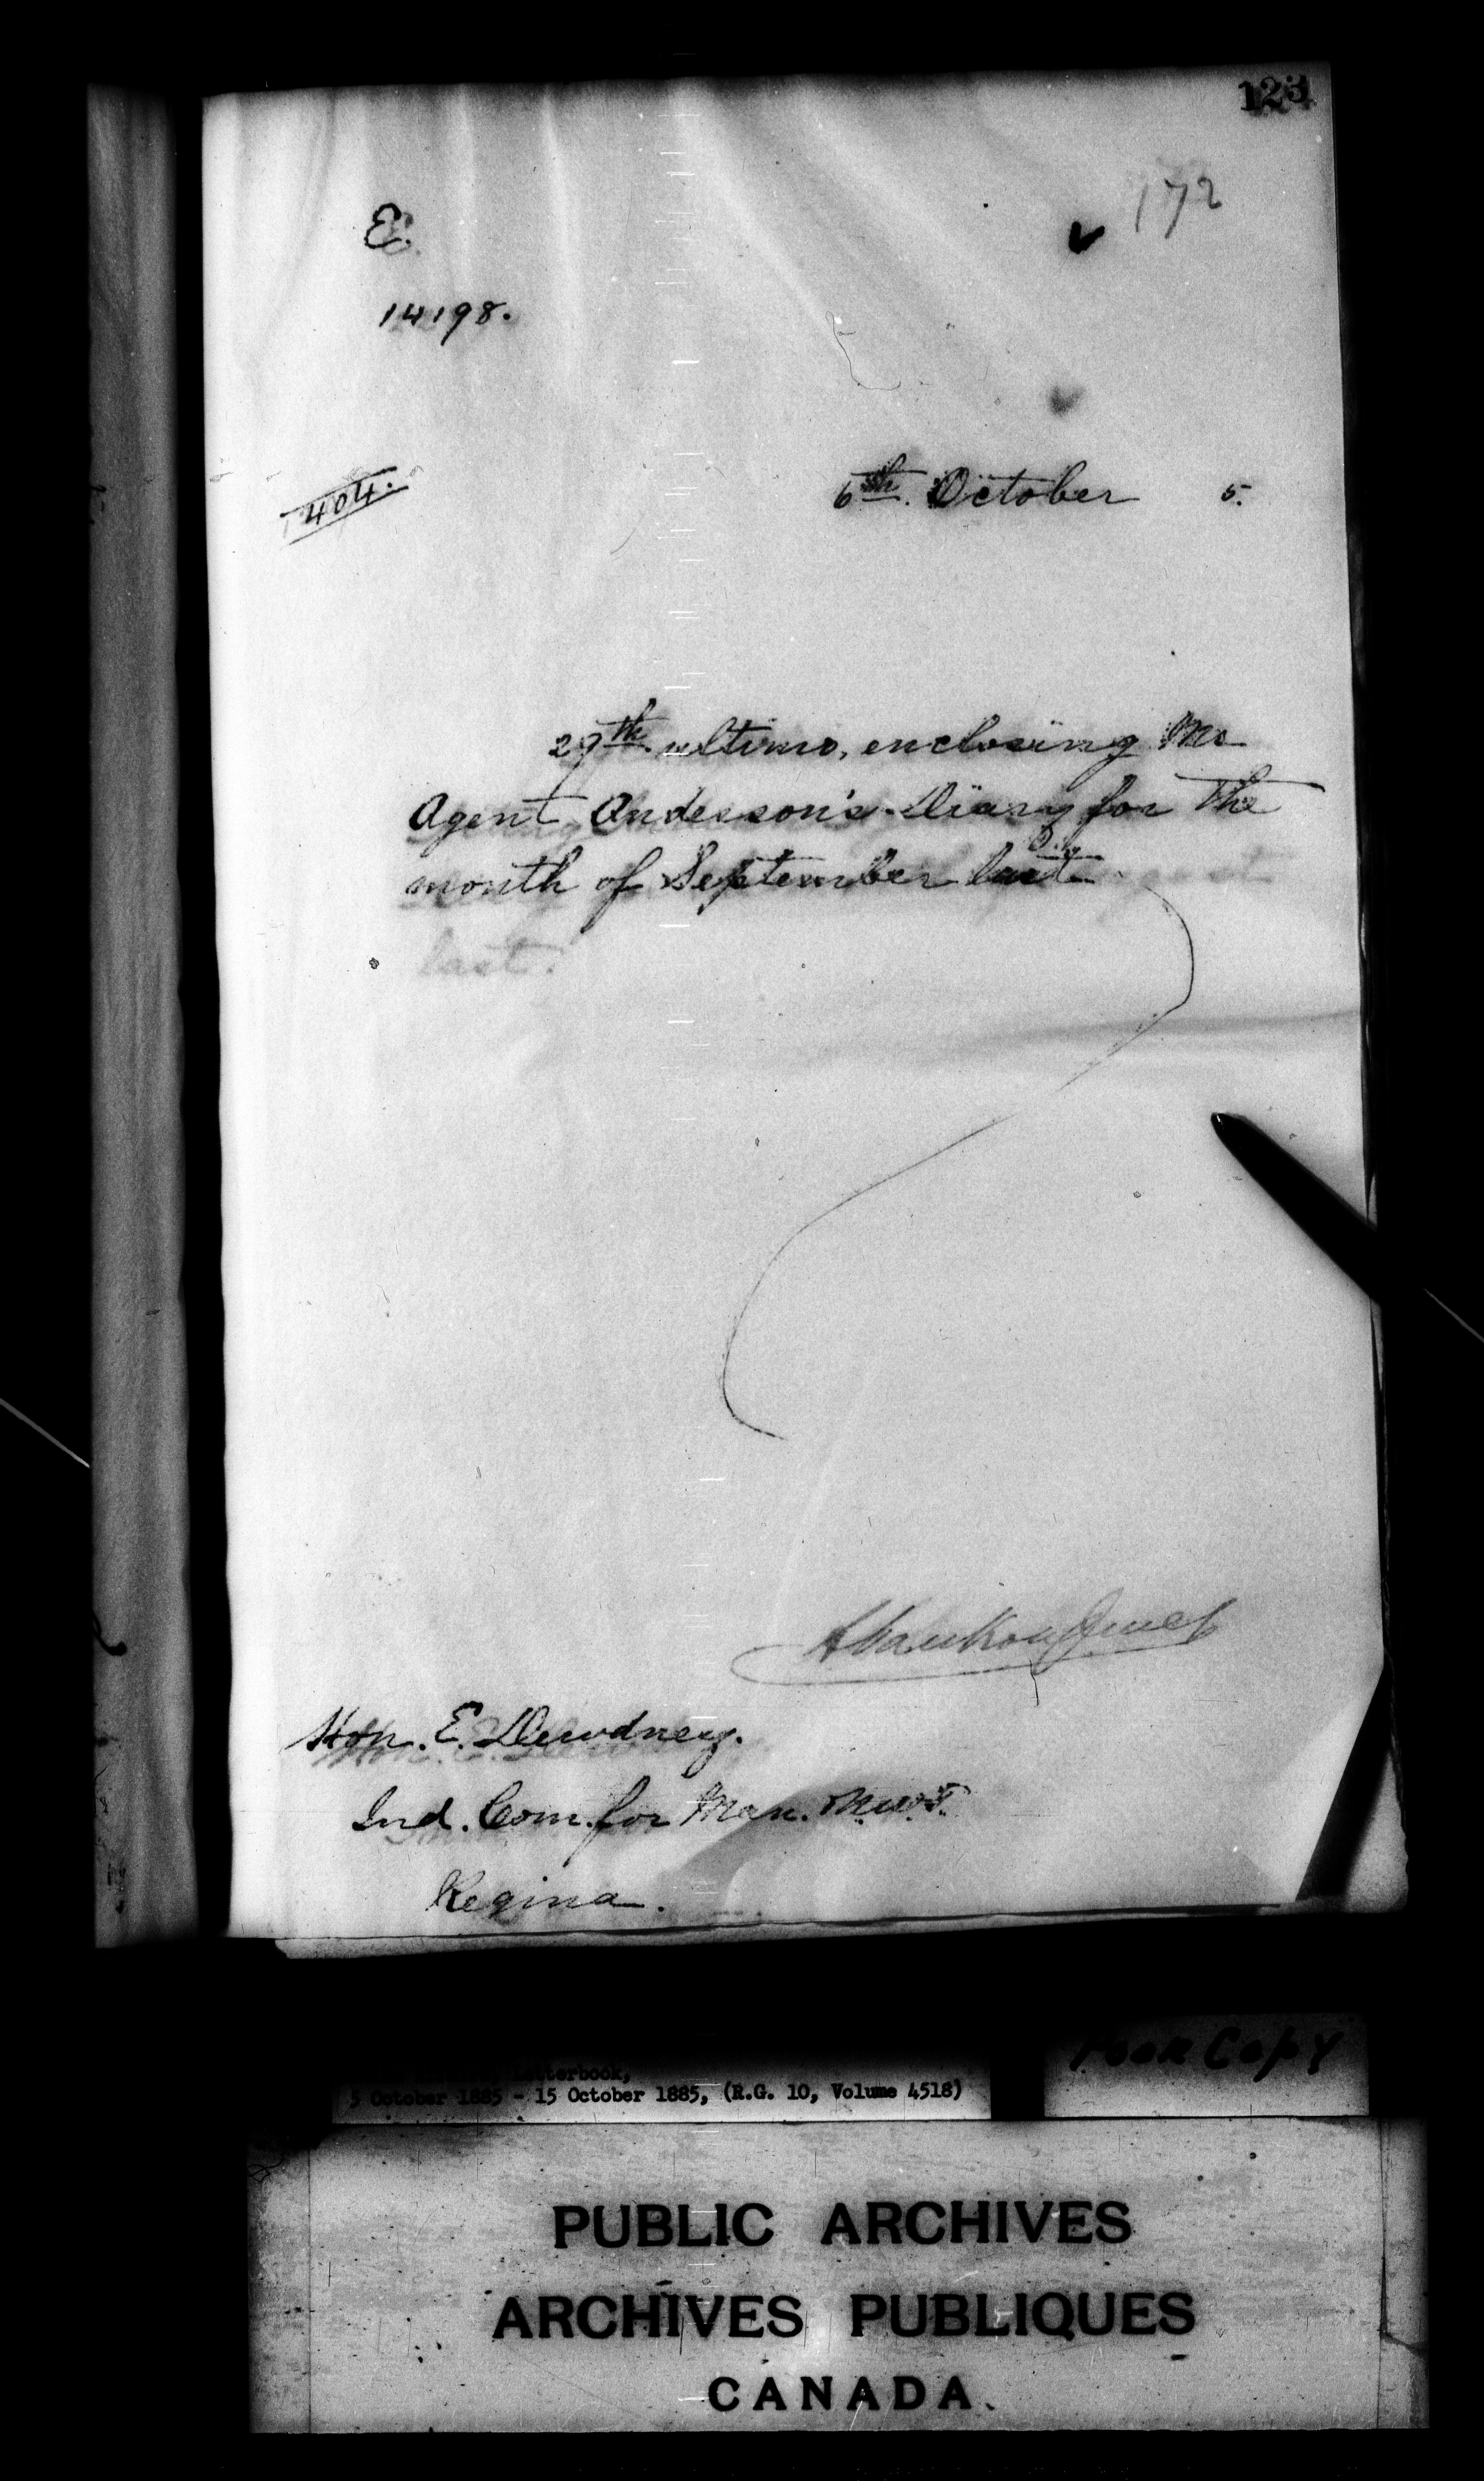 123
172
E.
14198.
404.
6th. October 5.
29th ultimo, enclosing Mr
Agent Anderson's Diary for the
month of September last
last.
A VanKoughnet
Hon. E. Dewdney.
Ind. Com. for Man. N.W.T.
Regina.
Letterbook,
5 October 1885 - 15 October 1885, (R.G. 10, Volume 4518)
Poor Copy
PUBLIC ARCHIVES
ARCHIVES PUBLIQUES
CANADA